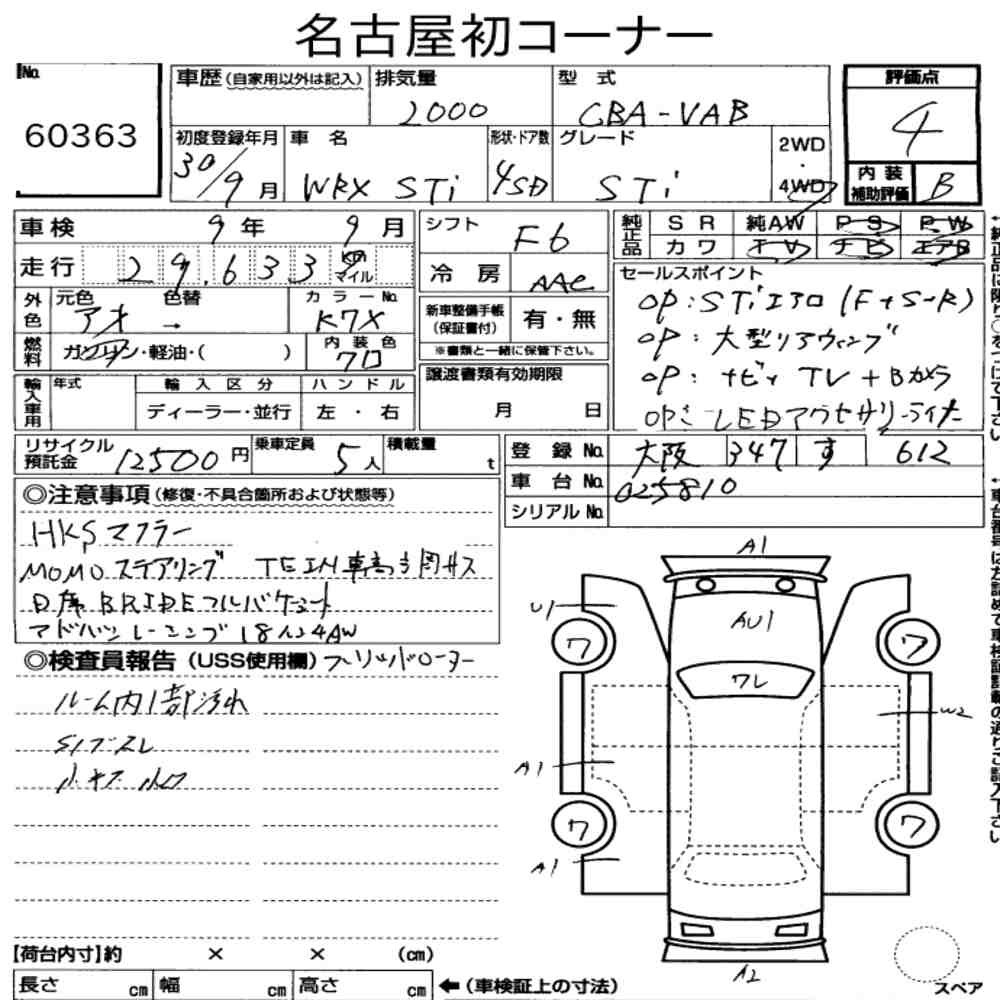 名古屋初コーナー
No. 60363
車歴(自家用以外は記入)
排気量 2000
型式 CBA-VAB
評価点 4
内装補助評価 B
初度登録年月 30/9月
車名 WRX STi
形状・ドア数 4SD
グレード STi
2WD・4WD
車検 9年 9月
シフト F6
純正品 SR 純AW PS PW
カワ TV ナビ エアB
走行 29,633 km マイル
冷房 AAC
セールスポイント
OP:STiエアロ(F+S+R)
OP:大型リアウィング
OP:ナビィTV+Bカメラ
OP:LEDアクセサリーライナー
外色 元色 アオ → 色替
カラーNo. K7X
新車整備手帳(保証書付) 有・無
※書類と一緒に保管下さい。
燃料 ガソリン・軽油・( )
内装色 クロ
輸入車用 年式
輸入区分 ディーラー・並行
ハンドル 左・右
譲渡書類有効期限 月 日
リサイクル預託金 12500円
乗車定員 5人
積載量 t
登録No. 大阪 347 す 612
車台No. 025810
シリアルNo.
◎注意事項(修復・不具合箇所および状態等)
HKSマフラー
MOMOステアリング TEIN車高調サス
D席BRIDEフルバケシート
アドバンレーシング18インチAW
◎検査員報告(USS使用欄) フーリッパドローヨー
ルーム内1部汚れ
SIブスレ
小キズ 小凹
A1
U1
AU1
ワ
ワ
ワレ
W2
A1
ワ
ワ
A1
A2
スペア
【荷台内寸】約 × × (cm)
長さ cm 幅 cm 高さ cm ←(車検証上の寸法)